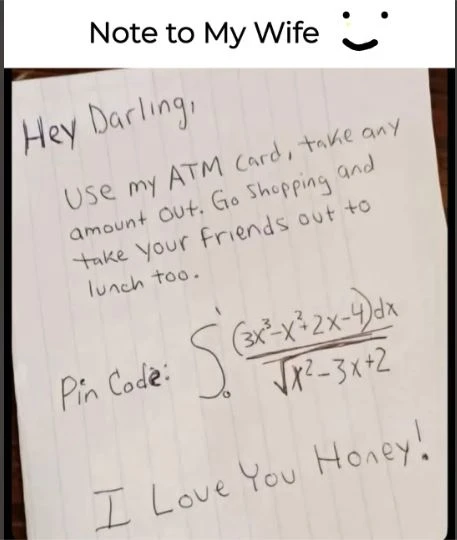 Note to My Wife
Hey Darling,
Use my ATM Card, take any
amount out. Go Shopping and
take your friends out to
lunch too.
Pin Code: ∫₀¹ (3x³-x²+2x-4)dx / √x²-3x+2
I Love You Honey!